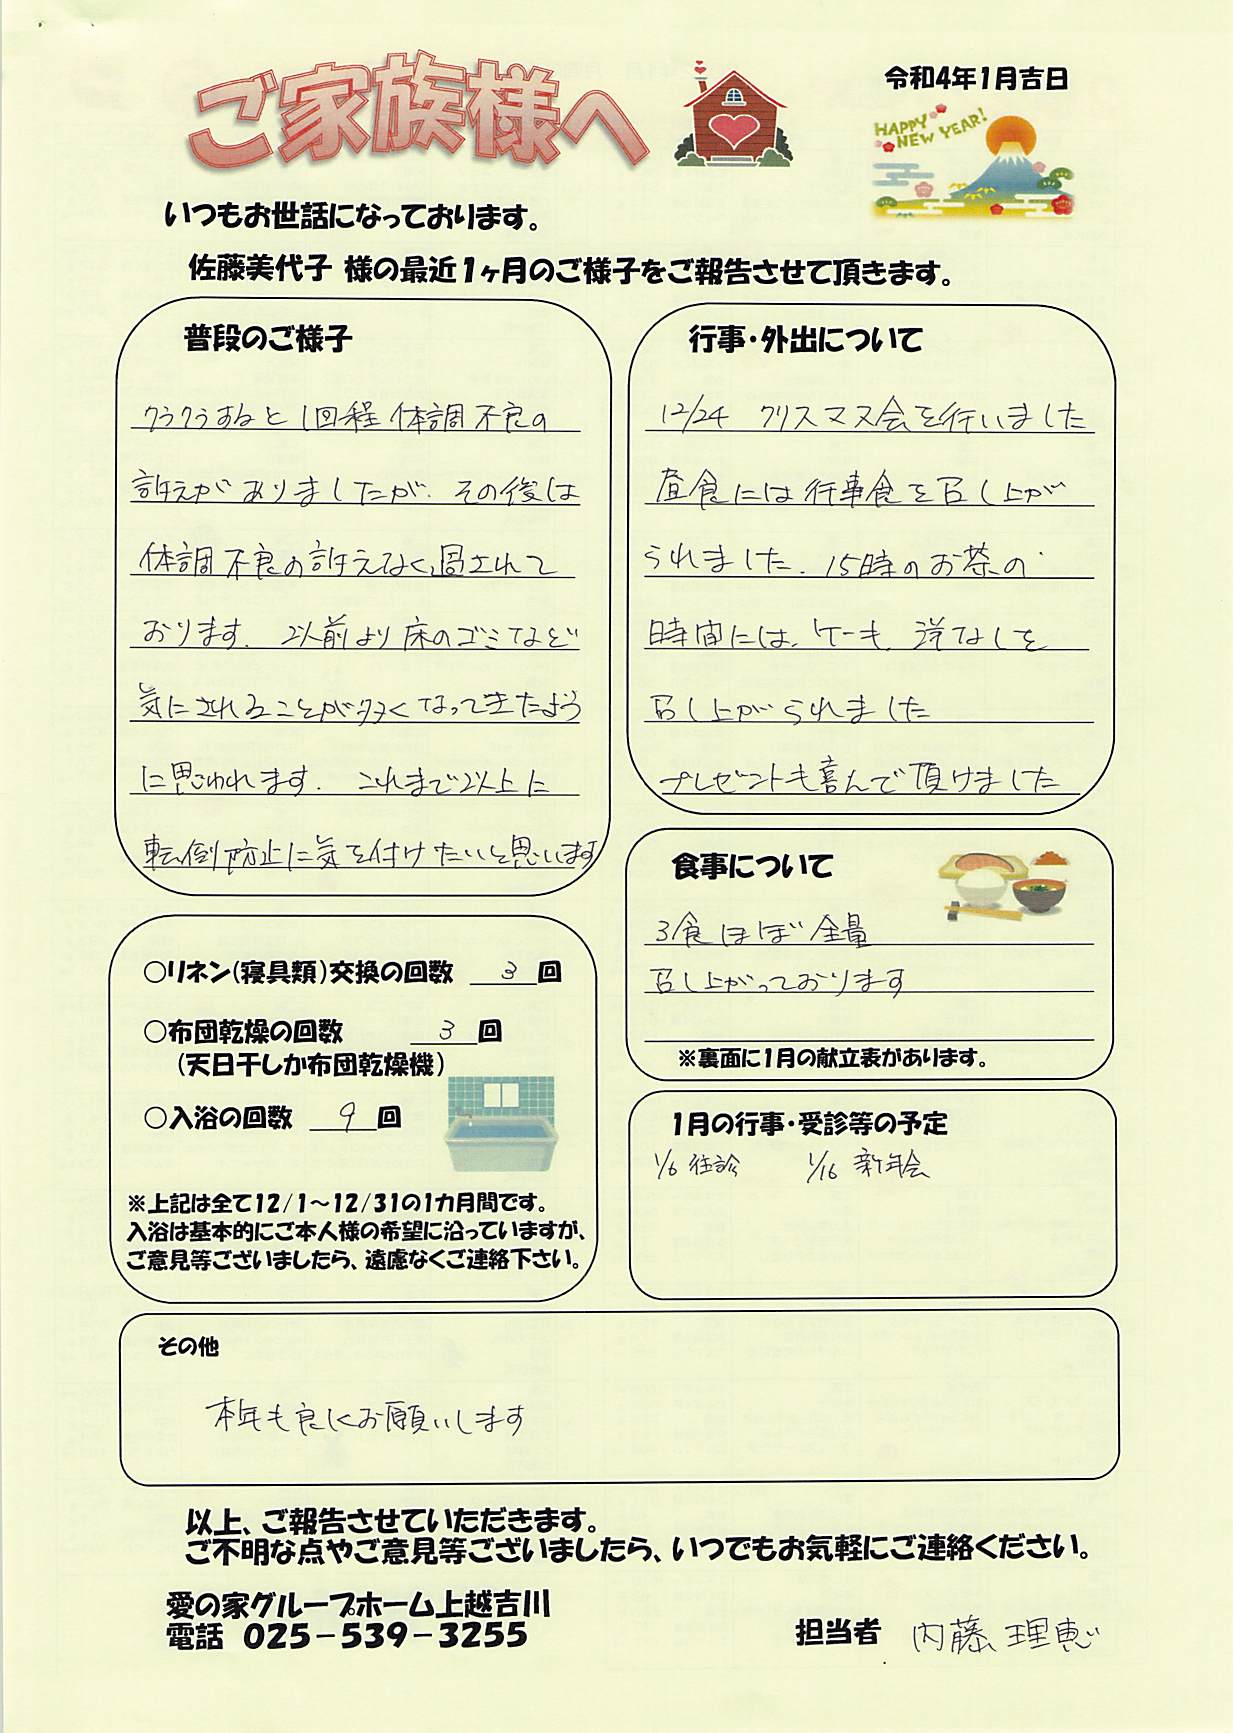 ご家族様へ
令和4年1月吉日
HAPPY
NEW YEAR!
いつもお世話になっております。
佐藤美代子 様の最近1ヶ月のご様子をご報告させて頂きます。
普段のご様子
クラクラすると1回程体調不良の
訴えがありましたが、その後は
体調不良の訴えなく過されて
おります。以前より床のゴミなど
気にされることが多くなってきたよう
に思われます。これまで以上に
転倒防止に気を付けたいと思います
行事・外出について
12/24 クリスマス会を行いました
昼食には行事食を召し上が
られました。15時のお茶の
時間には、ケーキ、洋なしを
召し上がられました
プレゼントも喜んで頂けました
食事について
3食ほぼ全量
召し上がっております
※裏面に1月の献立表があります。
○リネン(寝具類)交換の回数 3回
○布団乾燥の回数 3回
(天日干しか布団乾燥機)
○入浴の回数 9回
※上記は全て12/1～12/31の1カ月間です。
入浴は基本的にご本人様の希望に沿っていますが、
ご意見等ございましたら、遠慮なくご連絡下さい。
1月の行事・受診等の予定
1/6 往診 1/16 新年会
その他
本年も良くお願いします
以上、ご報告させていただきます。
ご不明な点やご意見等ございましたら、いつでもお気軽にご連絡ください。
愛の家グループホーム上越吉川
電話 025-539-3255
担当者 内藤理恵